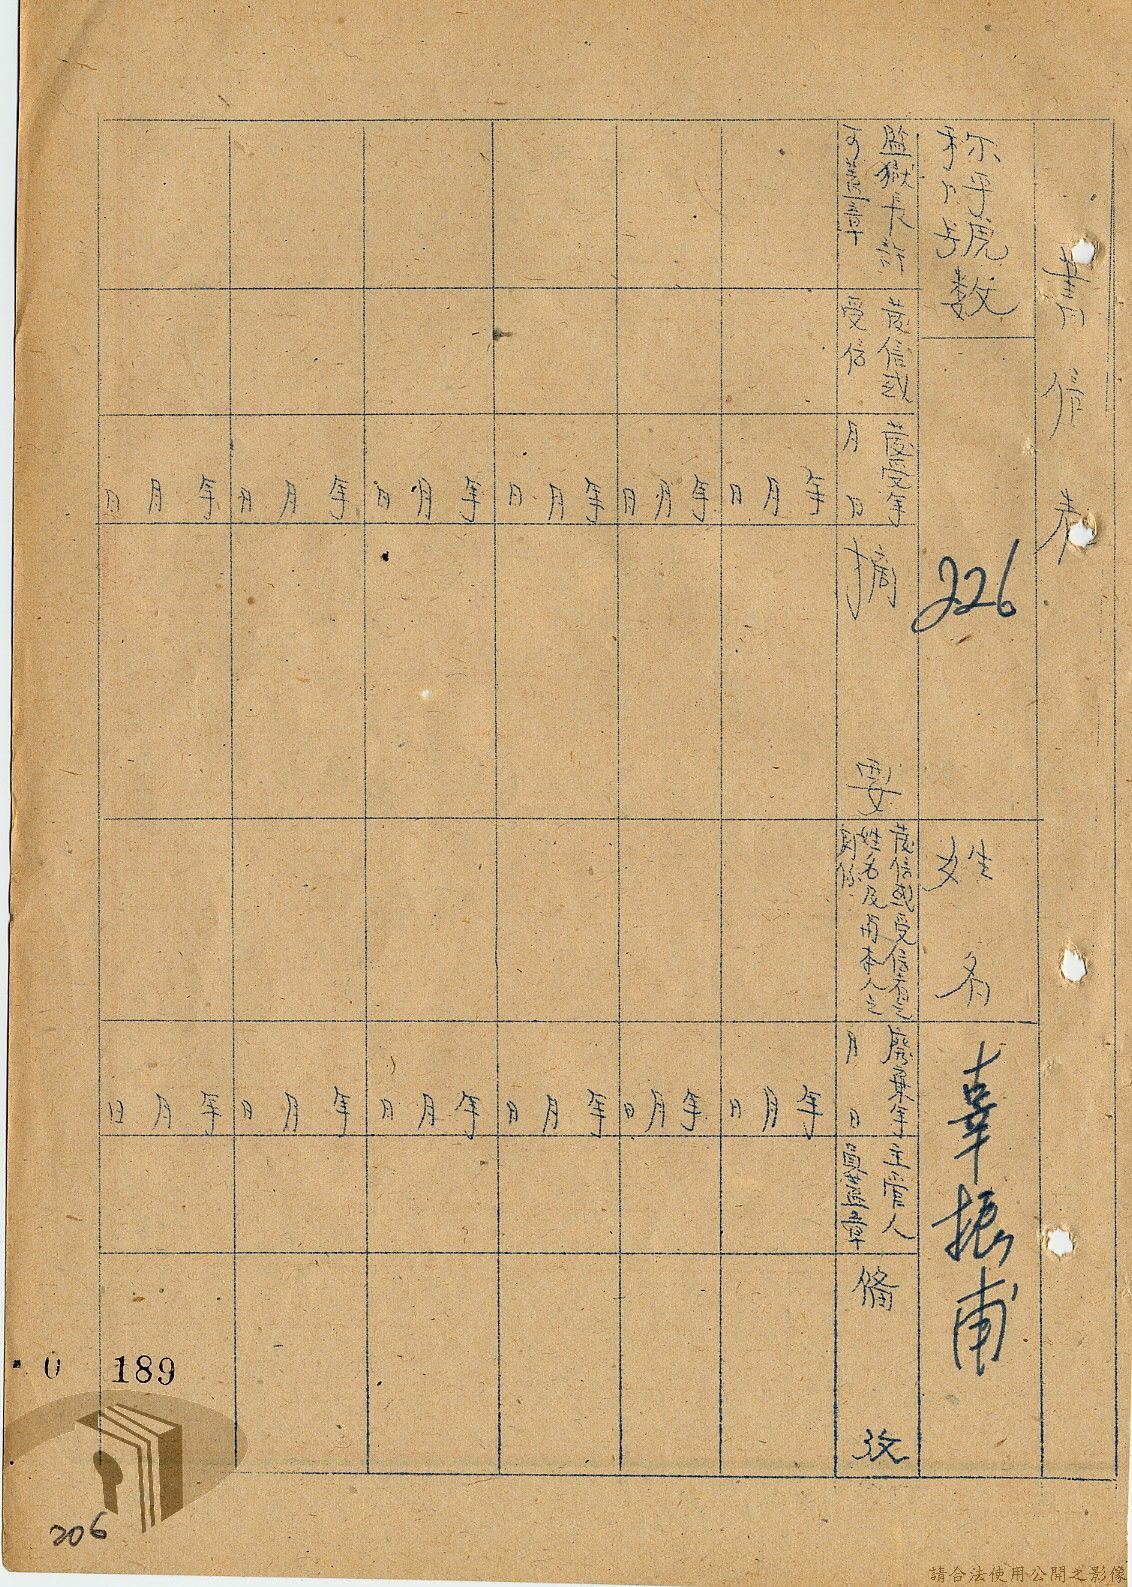 書信表
称呼號數
226
姓名
辜振甫
監獄長許
可蓋章
發信或
受信
發受年
月日
摘要
發信或受信者之
姓名及與本人之
關係
廢棄年
月日
主管人
員蓋章
備攷
年月日
年月日
年月日
年月日
年月日
年月日
年月日
年月日
年月日
年月日
年月日
年月日
0 189
206
請合法使用公開之影像